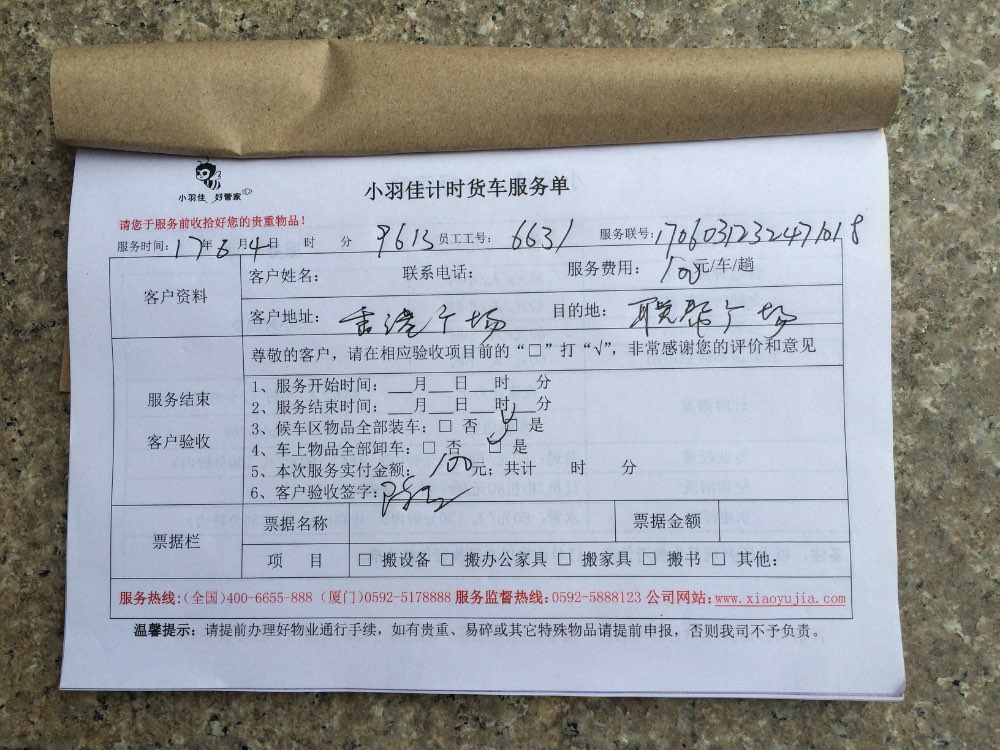 小羽佳 好管家
小羽佳计时货车服务单
请您于服务前收拾好您的贵重物品！
服务时间：17年6月4日 时 分 9613 员工工号：6631 服务联号：1706031232471018
客户资料
客户姓名： 联系电话： 服务费用：100元/车/趟
客户地址：香港广场 目的地：联邦广场
服务结束
客户验收
尊敬的客户，请在相应验收项目前的“□”打“√”，非常感谢您的评价和意见
1、服务开始时间：___月___日___时___分
2、服务结束时间：___月___日___时___分
3、候车区物品全部装车：□ 否 □ 是
4、车上物品全部卸车：□ 否 □ 是
5、本次服务实付金额：100元；共计 时 分
6、客户验收签字：
票据栏
票据名称 票据金额
项 目 □ 搬设备 □ 搬办公家具 □ 搬家具 □ 搬书 □ 其他：
服务热线：(全国)400-6655-888 (厦门)0592-5178888 服务监督热线：0592-5888123 公司网站：www.xiaoyujia.com
温馨提示：请提前办理好物业通行手续，如有贵重、易碎或其它特殊物品请提前申报，否则我司不予负责。